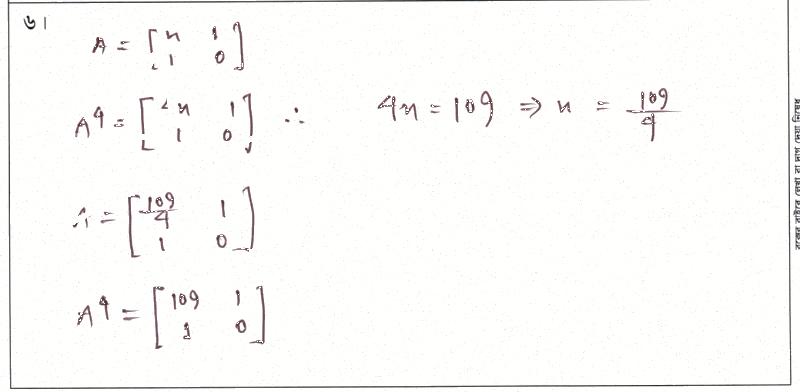 ৬।
A = [x 1
1 0]
A⁴ = [4x 1
1 0] ∴ 4x = 109 ⇒ x = 109/4
A = [109/4 1
1 0]
A⁴ = [109 1
1 0]